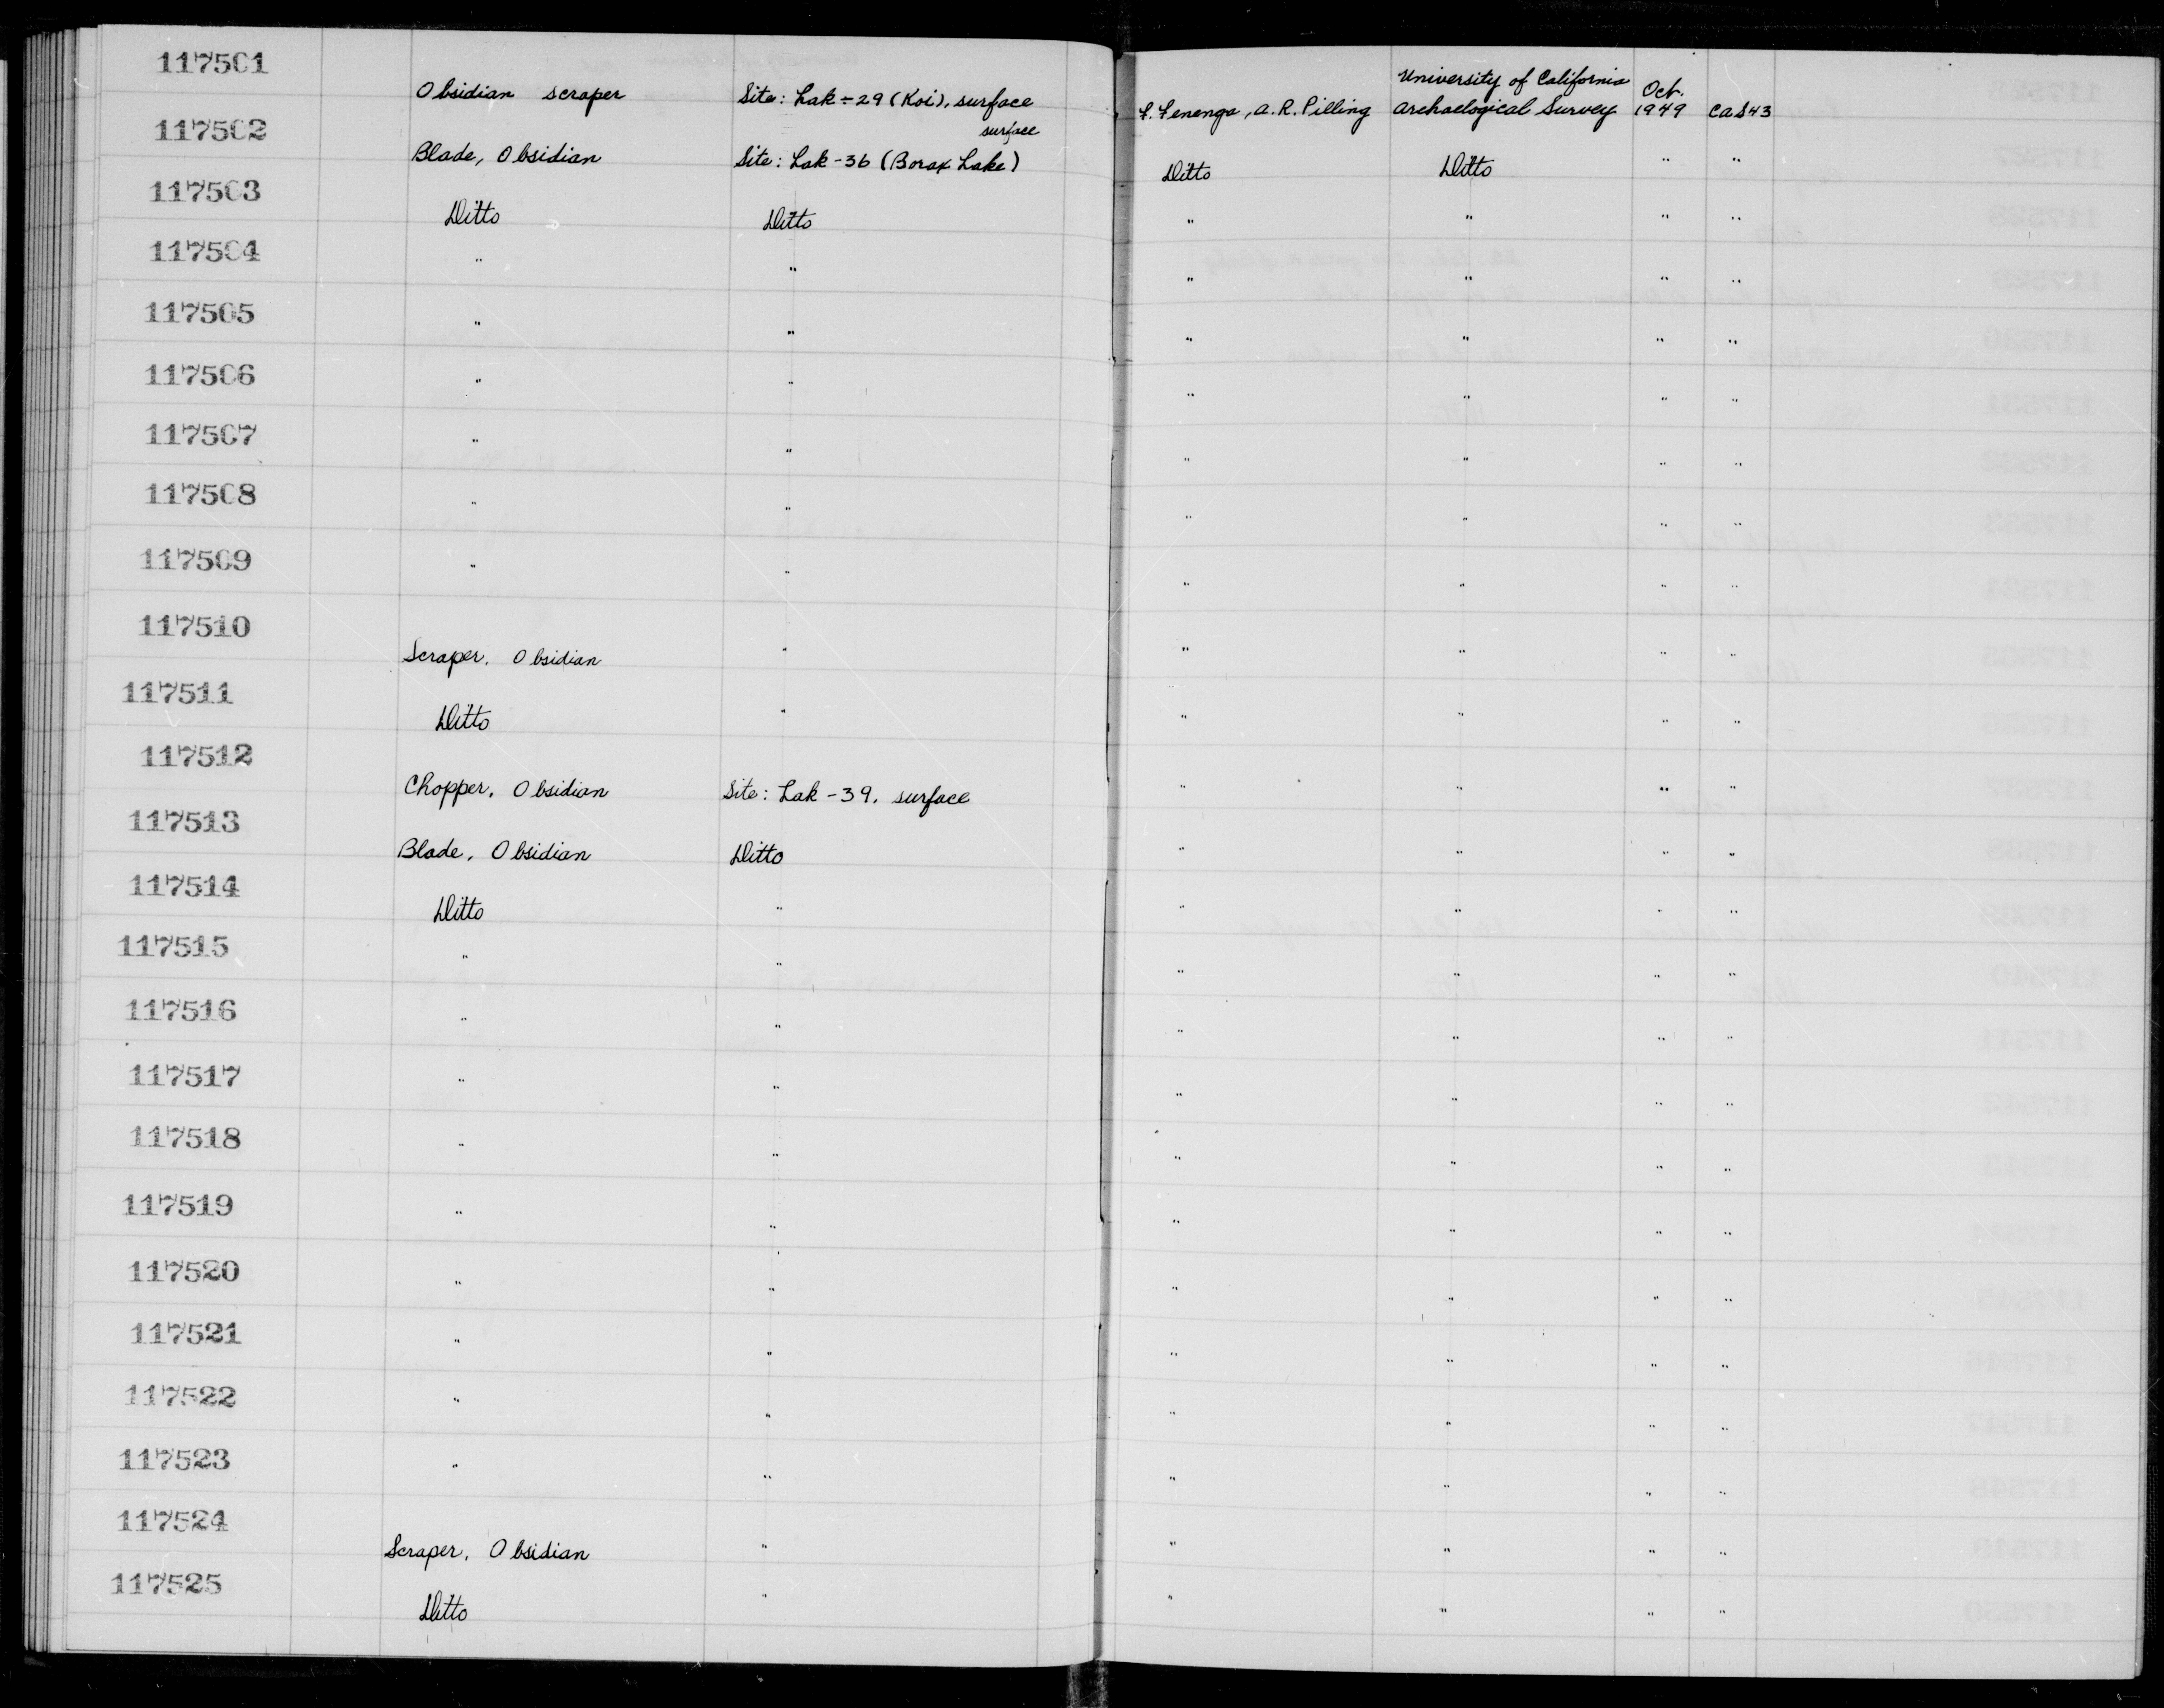 117501
Obsidian scraper Site: Lak-29 (Koi), surface F. Fenenga, A.R. Pilling University of California Archaelogical Survey Oct. 1949 CAS43
117502
Blade, Obsidian Site: Lak-36 (Borax Lake) surface Ditto Ditto " "
117503
Ditto Ditto " " " "
117504
" " " " " "
117505
" " " " " "
117506
" " " " " "
117507
" " " " " "
117508
" " " " " "
117509
" " " " " "
117510
Scraper, Obsidian " " " " "
117511
Ditto " " " " "
117512
Chopper, Obsidian Site: Lak-39, surface " " " "
117513
Blade, Obsidian Ditto " " " "
117514
Ditto " " " " "
117515
" " " " " "
117516
" " " " " "
117517
" " " " " "
117518
" " " " " "
117519
" " " " " "
117520
" " " " " "
117521
" " " " " "
117522
" " " " " "
117523
" " " " " "
117524
Scraper, Obsidian " " " " "
117525
Ditto " " " " "